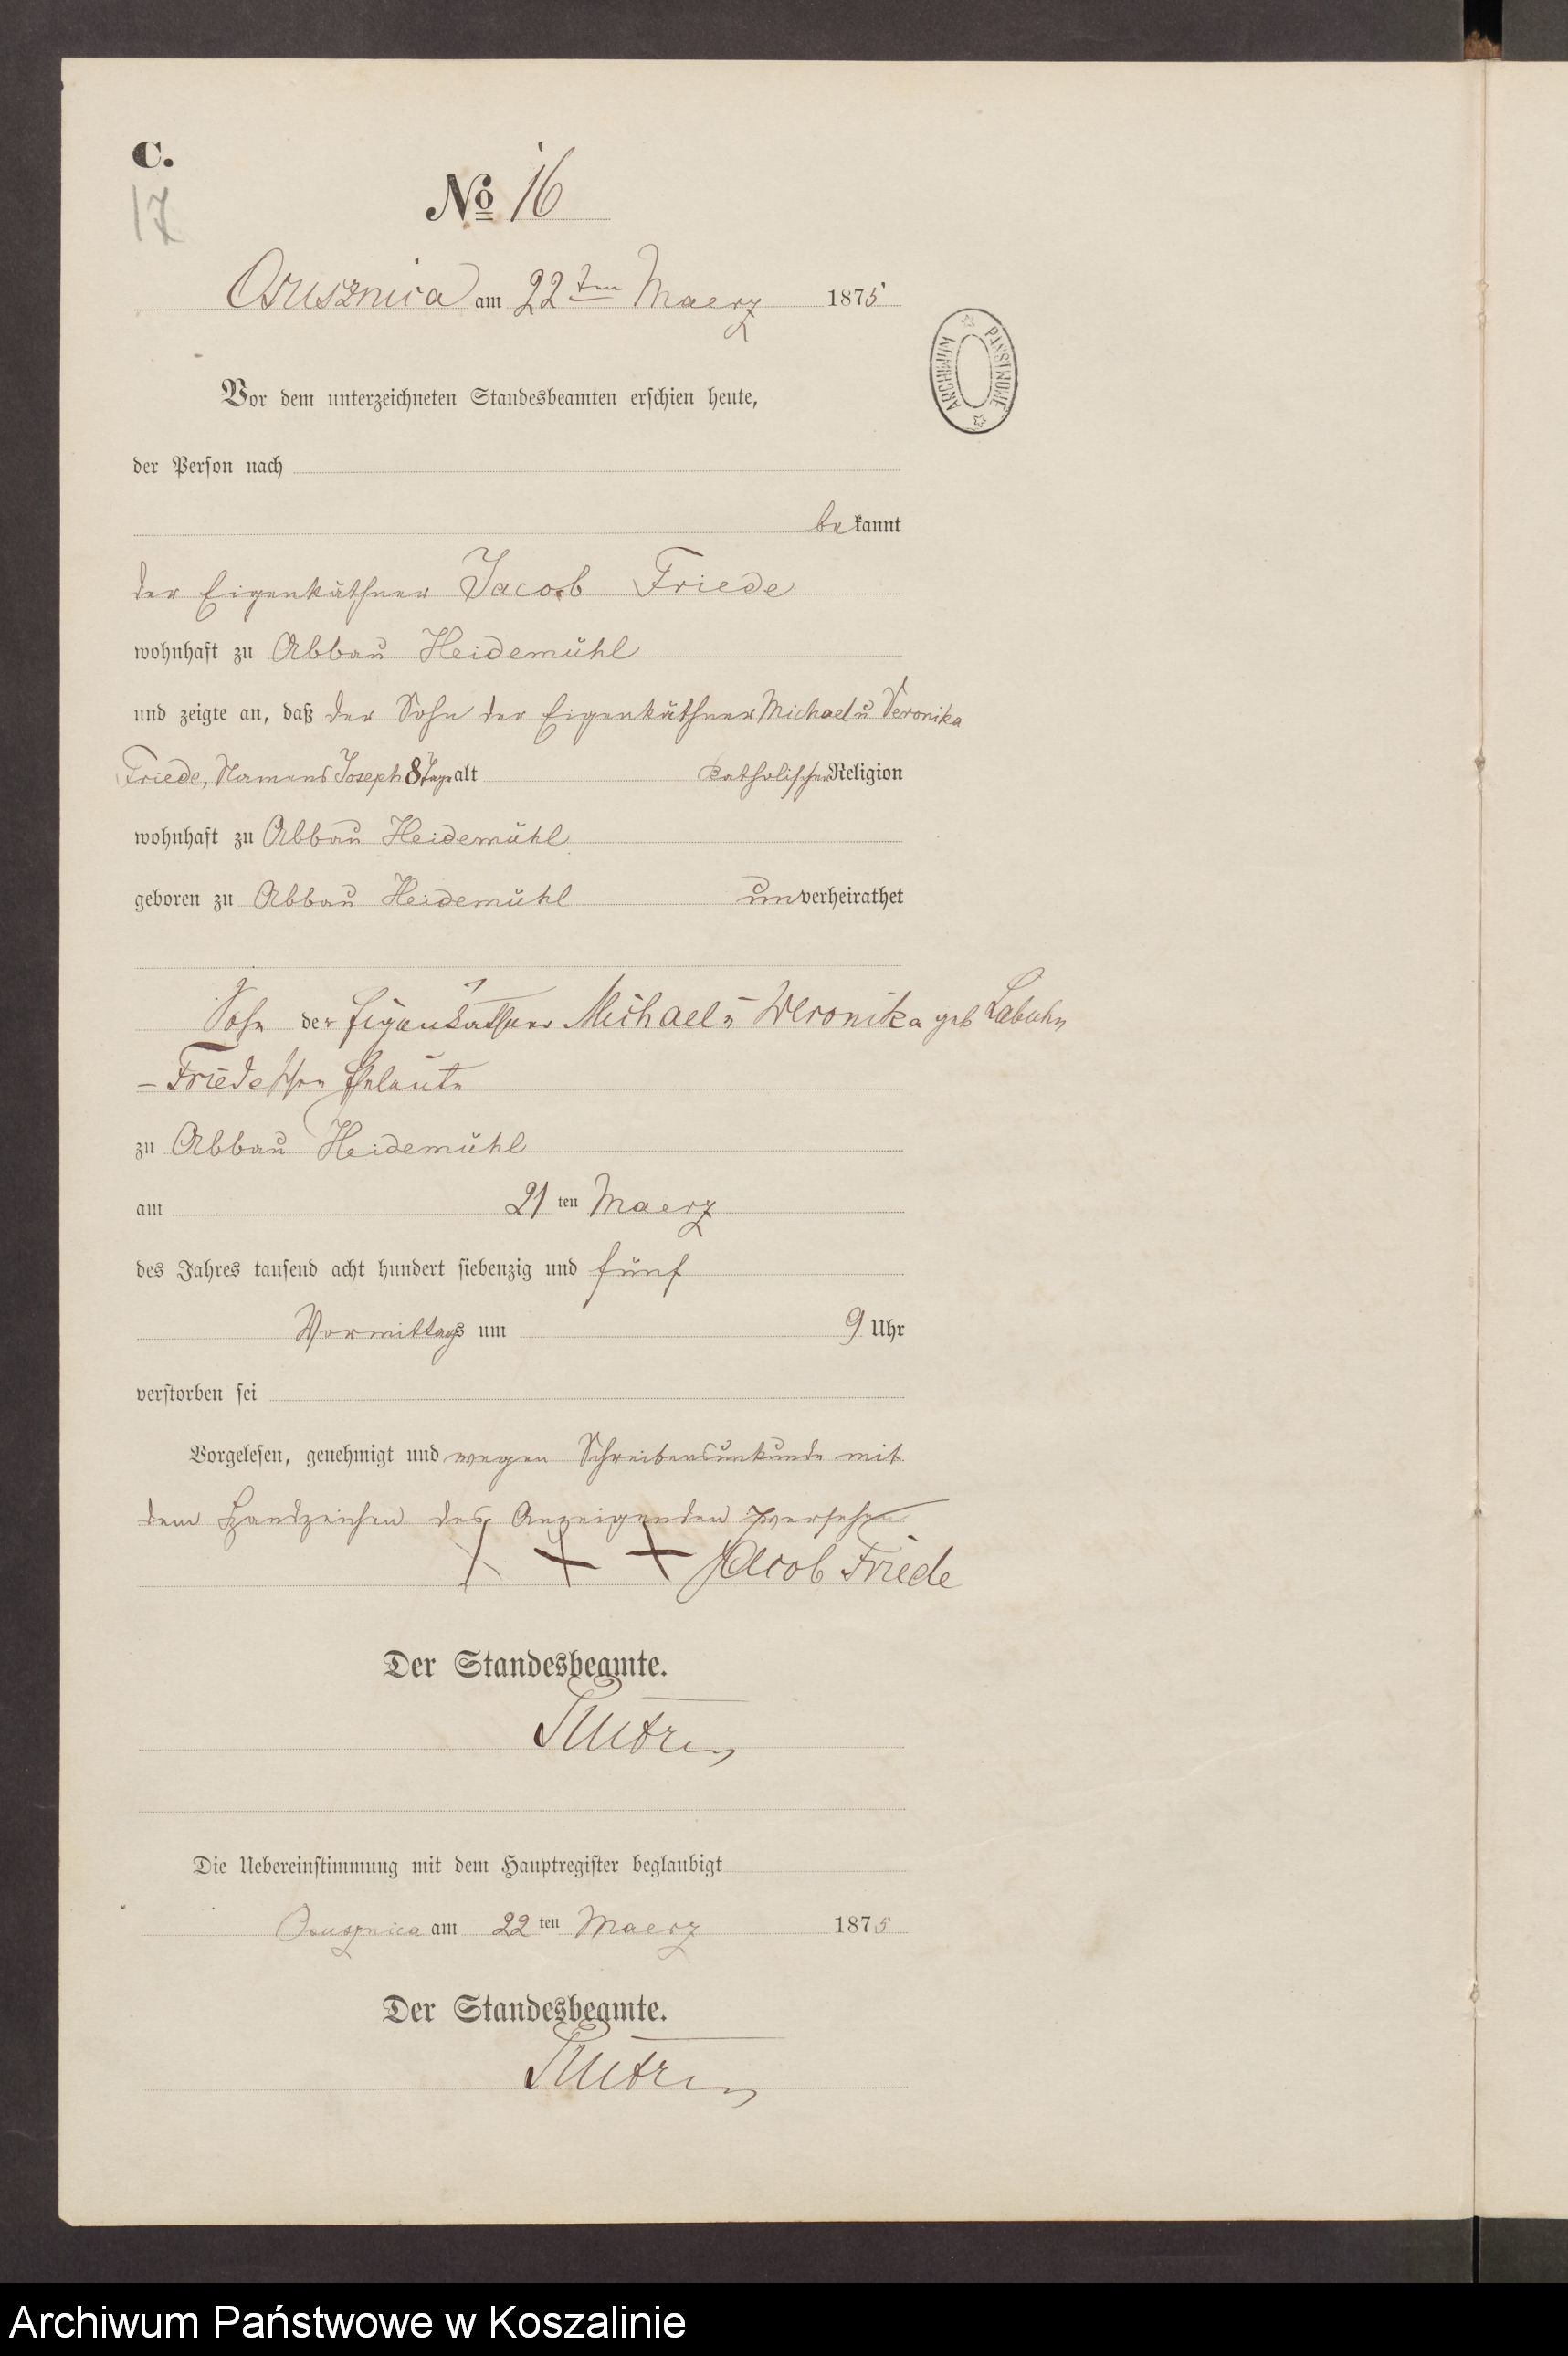 C.
17
No 16
Osusznica am 22ten Maerz 1875
ARCHIWUM PAŃSTWOWE
Vor dem unterzeichneten Standesbeamten erschien heute,
der Person nach
bekannt
der Eigenkäthner Jacob Friede
wohnhaft zu Abbau Heidemühl
und zeigte an, daß der Sohn der Eigenkäthner Michael u Veronika
Friede, Namens Joseph 8 Tage alt katholischer Religion
wohnhaft zu Abbau Heidemühl
geboren zu Abbau Heidemühl unverheirathet
Sohn der Eigenkäthner Michael u Weronika geb Labuhn
– Friedeschen Eheleute
zu Abbau Heidemühl
am 21 ten Maerz
des Jahres tausend acht hundert siebenzig und fünf
Vormittags um 9 Uhr
verstorben sei
Vorgelesen, genehmigt und wegen Schreibensunkunde mit
dem Handzeichen des Anzeigenden versehen
+ + + Jacob Friede
Der Standesbeamte.
Die Uebereinstimmung mit dem Hauptregister beglaubigt
Osusznica am 22 ten Maerz 1875
Der Standesbeamte.
Archiwum Państwowe w Koszalinie